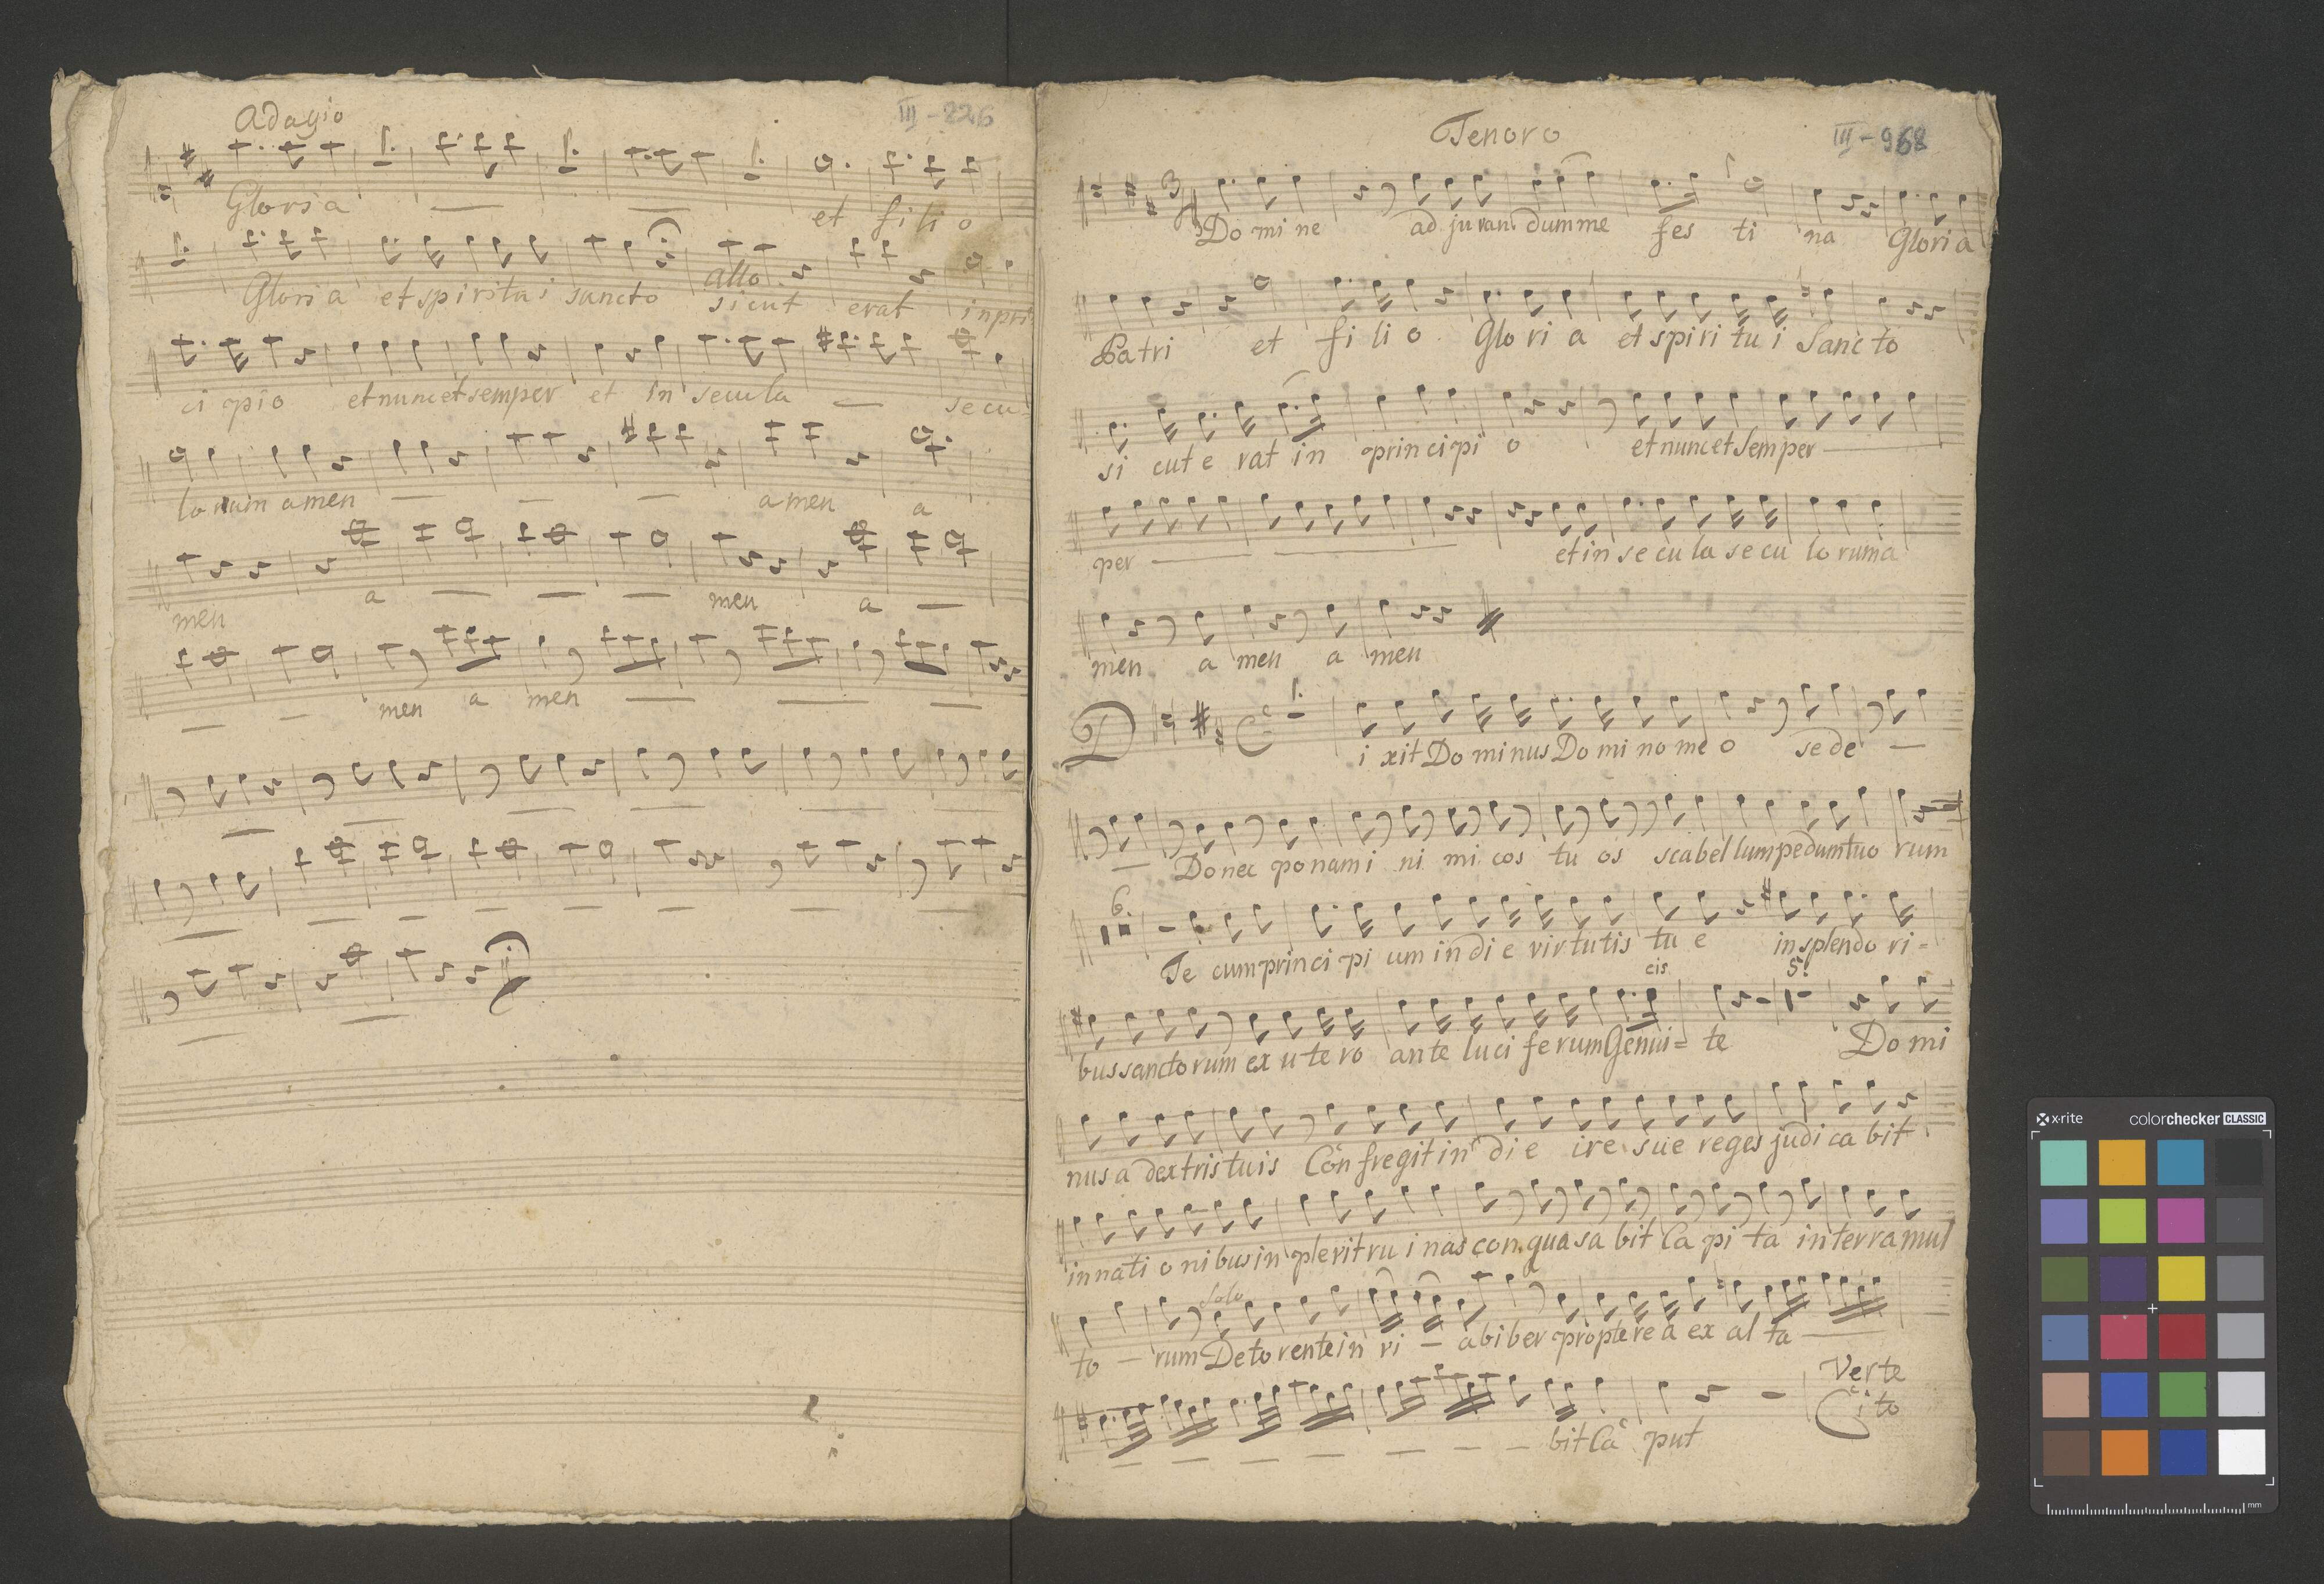 Adagio
III-226
Gloria et filio
Gloria et spiritui sancto allo sicut erat inpri
cipio et nunc et semper et in secula secu
lorum amen amen a
men a men a
men a men
Tenoro
III-968
Domine adjuvandum me festina Gloria
Patri et filio Gloria et spiritui Sancto
sicut erat in principio et nunc et Semper
per et in secula seculorum a
men a men a men
Dixit Dominus Domino meo sede
Donec ponam inimicos tuos scabellum pedum tuorum
6.
Tecum principium in die virtutis tue in splendori-
cis 5.
bus sanctorum ex utero ante luciferum Genui=te Domi
nus a dextris tuis Confregit in die ire sue reges judicabit
in nationibus inplerit ruinas conquasabit Capita in terra mul
Solo
to-rum De torente in ri-a biber propterea exalta
Verte
bit Caput Cito
x-rite colorchecker CLASSIC
mm